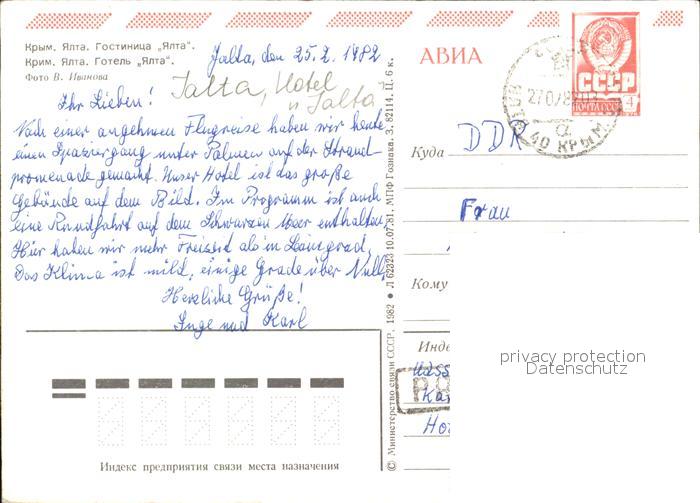 Крым. Ялта. Гостиница „Ялта“.
Крим. Ялта. Готель „Ялта“.
Фото В. Иванова
Jalta, den 25.2.1982
Jalta, Hotel
"Jalta"
Ihr Lieben!
Nach einer angenehmen Flugreise haben wir heute
einen Spaziergang unter Palmen auf der Strand-
promenade gemacht. Unser Hotel ist das große
Gebäude auf dem Bild. Im Programm ist auch
eine Rundfahrt auf dem Schwarzen Meer enthalten.
Hier haben wir mehr Freizeit als in Leningrad.
Das Klima ist mild, einige Grade über Null.
Herzliche Grüße!
Inge und Karl
Индекс предприятия связи места назначения
© Министерство связи СССР. 1982 ● Л 62323 10.07.81. МПФ Гознака. З. 82114. Ц. 6 к.
АВИА
СССР
ПОЧТА СССР
4
40 КРЫМ
Куда
DDR
Frau
Кому
Инде
Ho
privacy protection
Datenschutz